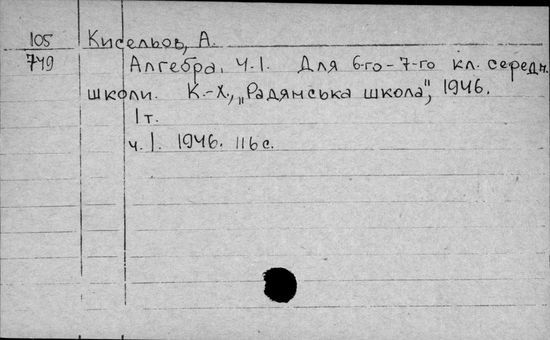 105 Кисельов, А.
749 Алгебра, ч.1. Для 6-го-7-го кл. середн.
школи. К.-Х., „Радянська школа", 1946.
1 т.
ч.1. 1946. 116 с.